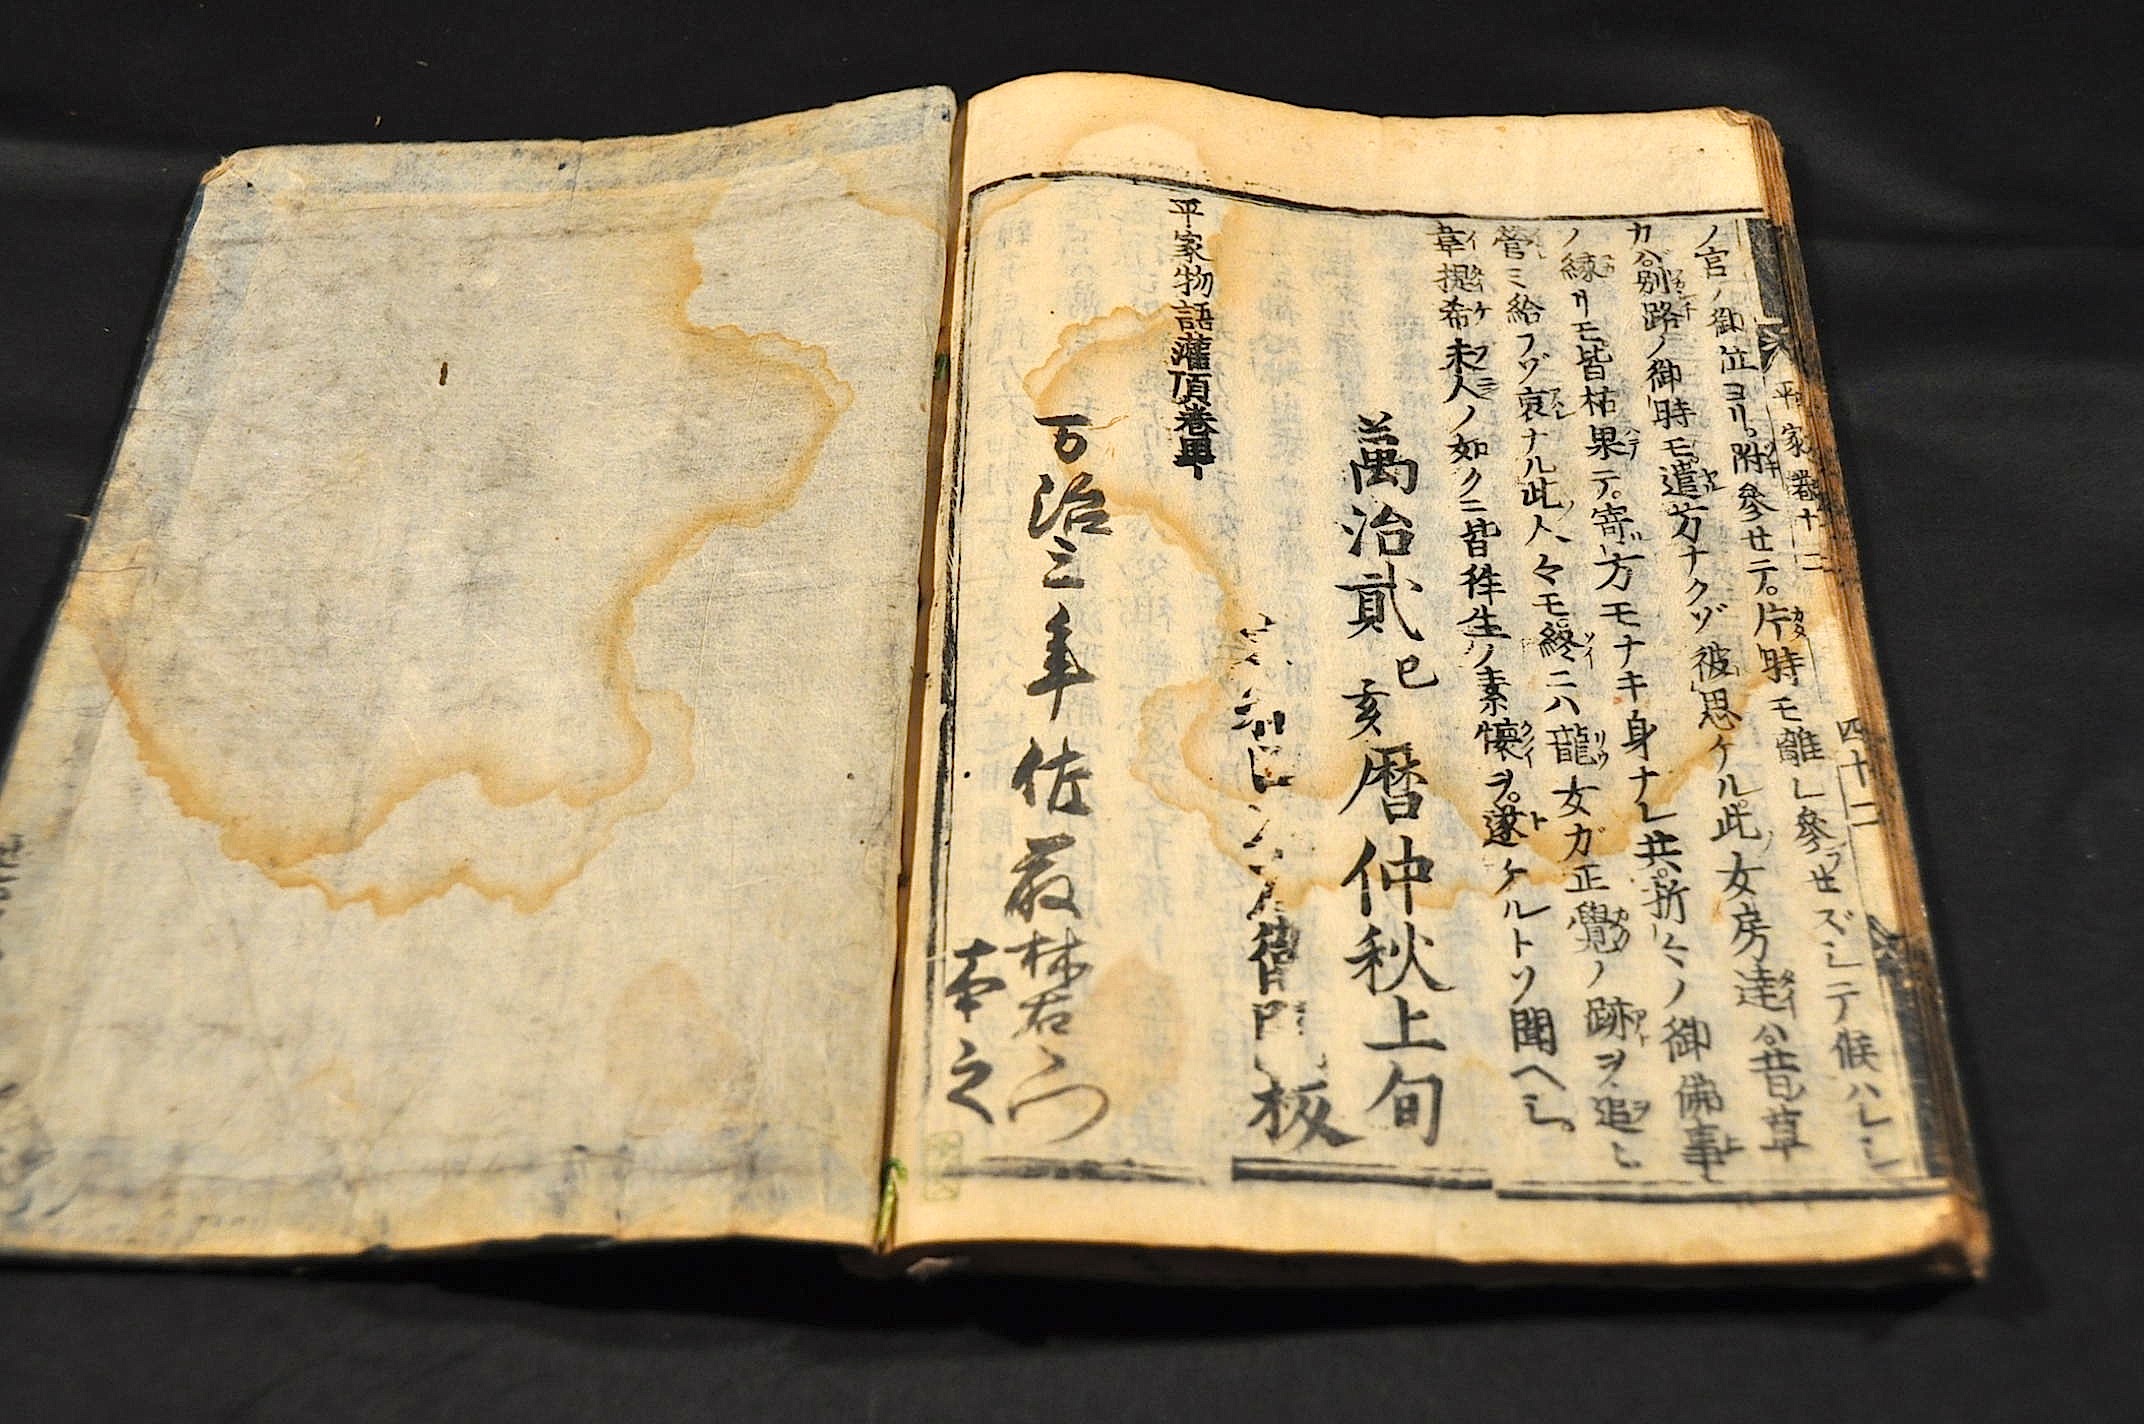 平家巻十二
四十二
ノ宮ノ御位ヨリ。附參セテ。片時モ離レ參ラセズシテ候ハレシ
カバ別路ノ御時モ。遣方ナクゾ彼思ケル。此女房達ハ。昔草
ノ縁リモ。皆枯果テ。寄方モナキ身ナレ共。折々ノ御佛事
營ミ給フゾ哀ナル此人々モ終ニハ龍女ガ正覺ノ跡ヲ追ヒ
韋提希夫人ノ如クニ皆往生ノ素懷ヲ。遂ケルトゾ聞ヘシ。
萬治貳己亥暦仲秋上旬
衛門板
平家物語灌頂巻畢
万治三年 佐
本之